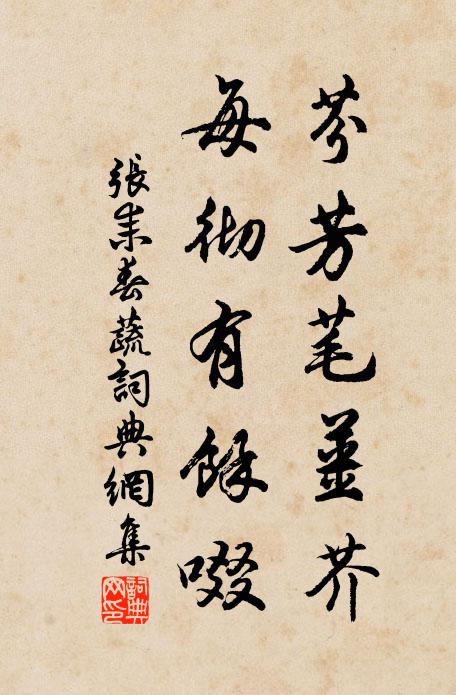 芬芳芼薑芥
每彻有餘啜
張耒春蔬詞典網集
詞典网印